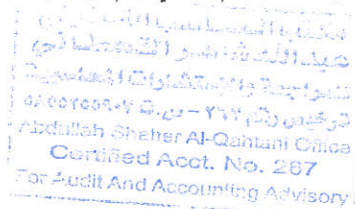 عبدالله شاهر القحطاني
للمراجعة والاستشارات المحاسبية
ترخيص رقم ٢٦٧ - س.ت
Abdullah Shaher Al-Qahtani Office
Certified Acct. No. 267
For Audit And Accounting Advisory